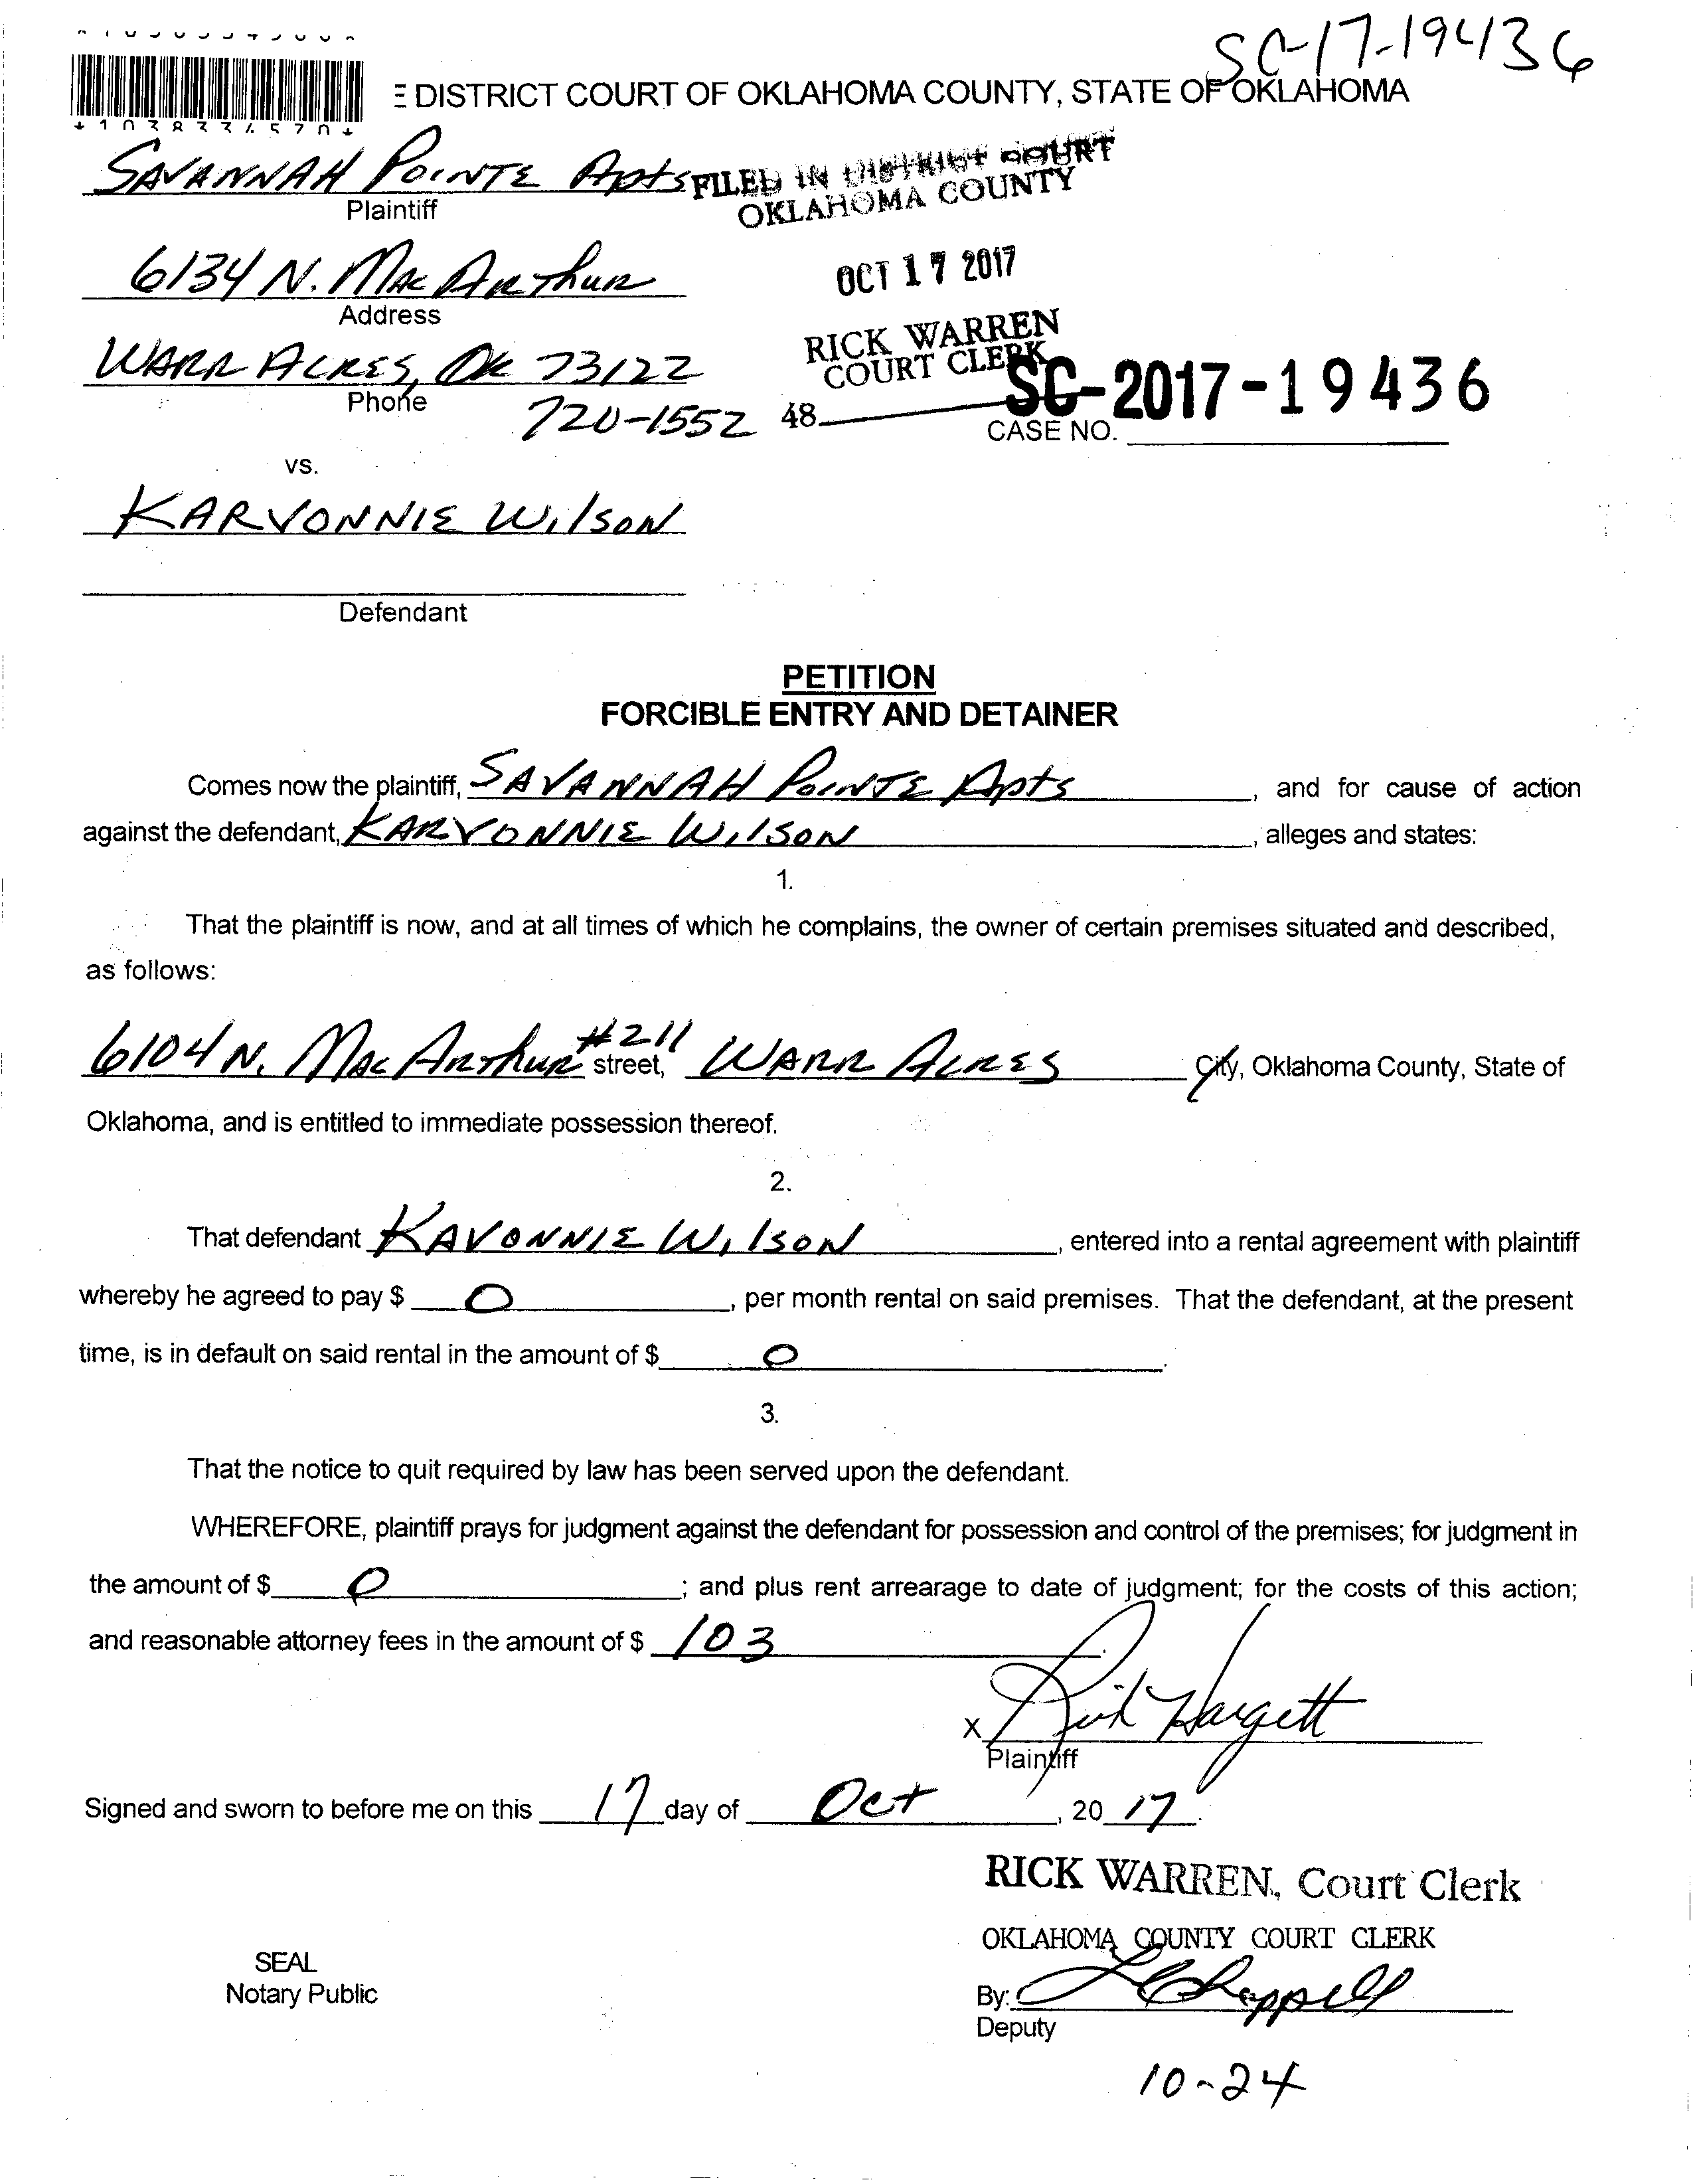 SC-17-19436
E DISTRICT COURT OF OKLAHOMA COUNTY, STATE OF OKLAHOMA
SAVANNAH POINTE Apts
Plaintiff
FILED IN DISTRICT COURT
OKLAHOMA COUNTY
6134 N. MacArthur
Address
OCT 17 2017
RICK WARREN
COURT CLERK
WARR ACRES, OK 73122
Phone
720-1552
48
SC-2017-19436
CASE NO.
vs.
KARVONNIE WilsoN
Defendant
PETITION
FORCIBLE ENTRY AND DETAINER
Comes now the plaintiff, SAVANNAH POINTE Apts, and for cause of action
against the defendant, KARVONNIE WilsoN, alleges and states:
1.
That the plaintiff is now, and at all times of which he complains, the owner of certain premises situated and described,
as follows:
6104 N. MacArthur #211 street, WARR ACRES City, Oklahoma County, State of
Oklahoma, and is entitled to immediate possession thereof.
2.
That defendant KAVONNIE WilsoN, entered into a rental agreement with plaintiff
whereby he agreed to pay $ 0, per month rental on said premises. That the defendant, at the present
time, is in default on said rental in the amount of $ 0.
3.
That the notice to quit required by law has been served upon the defendant.
WHEREFORE, plaintiff prays for judgment against the defendant for possession and control of the premises; for judgment in
the amount of $ 0; and plus rent arrearage to date of judgment; for the costs of this action;
and reasonable attorney fees in the amount of $ 103.
X Rick Hargett
Plaintiff
Signed and sworn to before me on this 17 day of Oct, 20 17.
RICK WARREN, Court Clerk
OKLAHOMA COUNTY COURT CLERK
SEAL
Notary Public
By: Chappell
Deputy
10-24